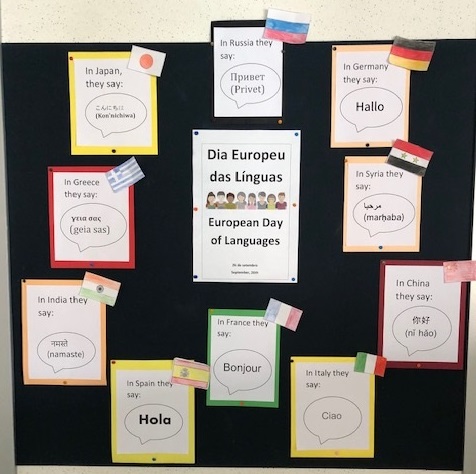 In Japan,
they say:
(Kon'nichiwa)
In Russia they
say:
Привет
(Privet)
In Germany
they say:
Hallo
In Greece
they say:
γεια σας
(geia sas)
Dia Europeu
das Línguas
European Day
of Languages
de setembro
September,
In Syria they
say:
مرحبا
(marḥaba)
In India they
say:
नमस्ते
(namaste)
In China
they say:
你好
(nǐ hǎo)
In Spain they
say:
Hola
In France they
say:
Bonjour
In Italy they
say:
Ciao